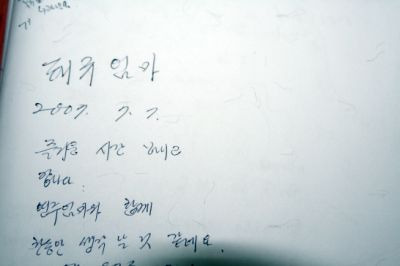 태주엄마
2007. 7. 7.
즐거운 시간 보내고
갑니다.
범주엄마와 함께
한동안 생각 날 것 같네요.